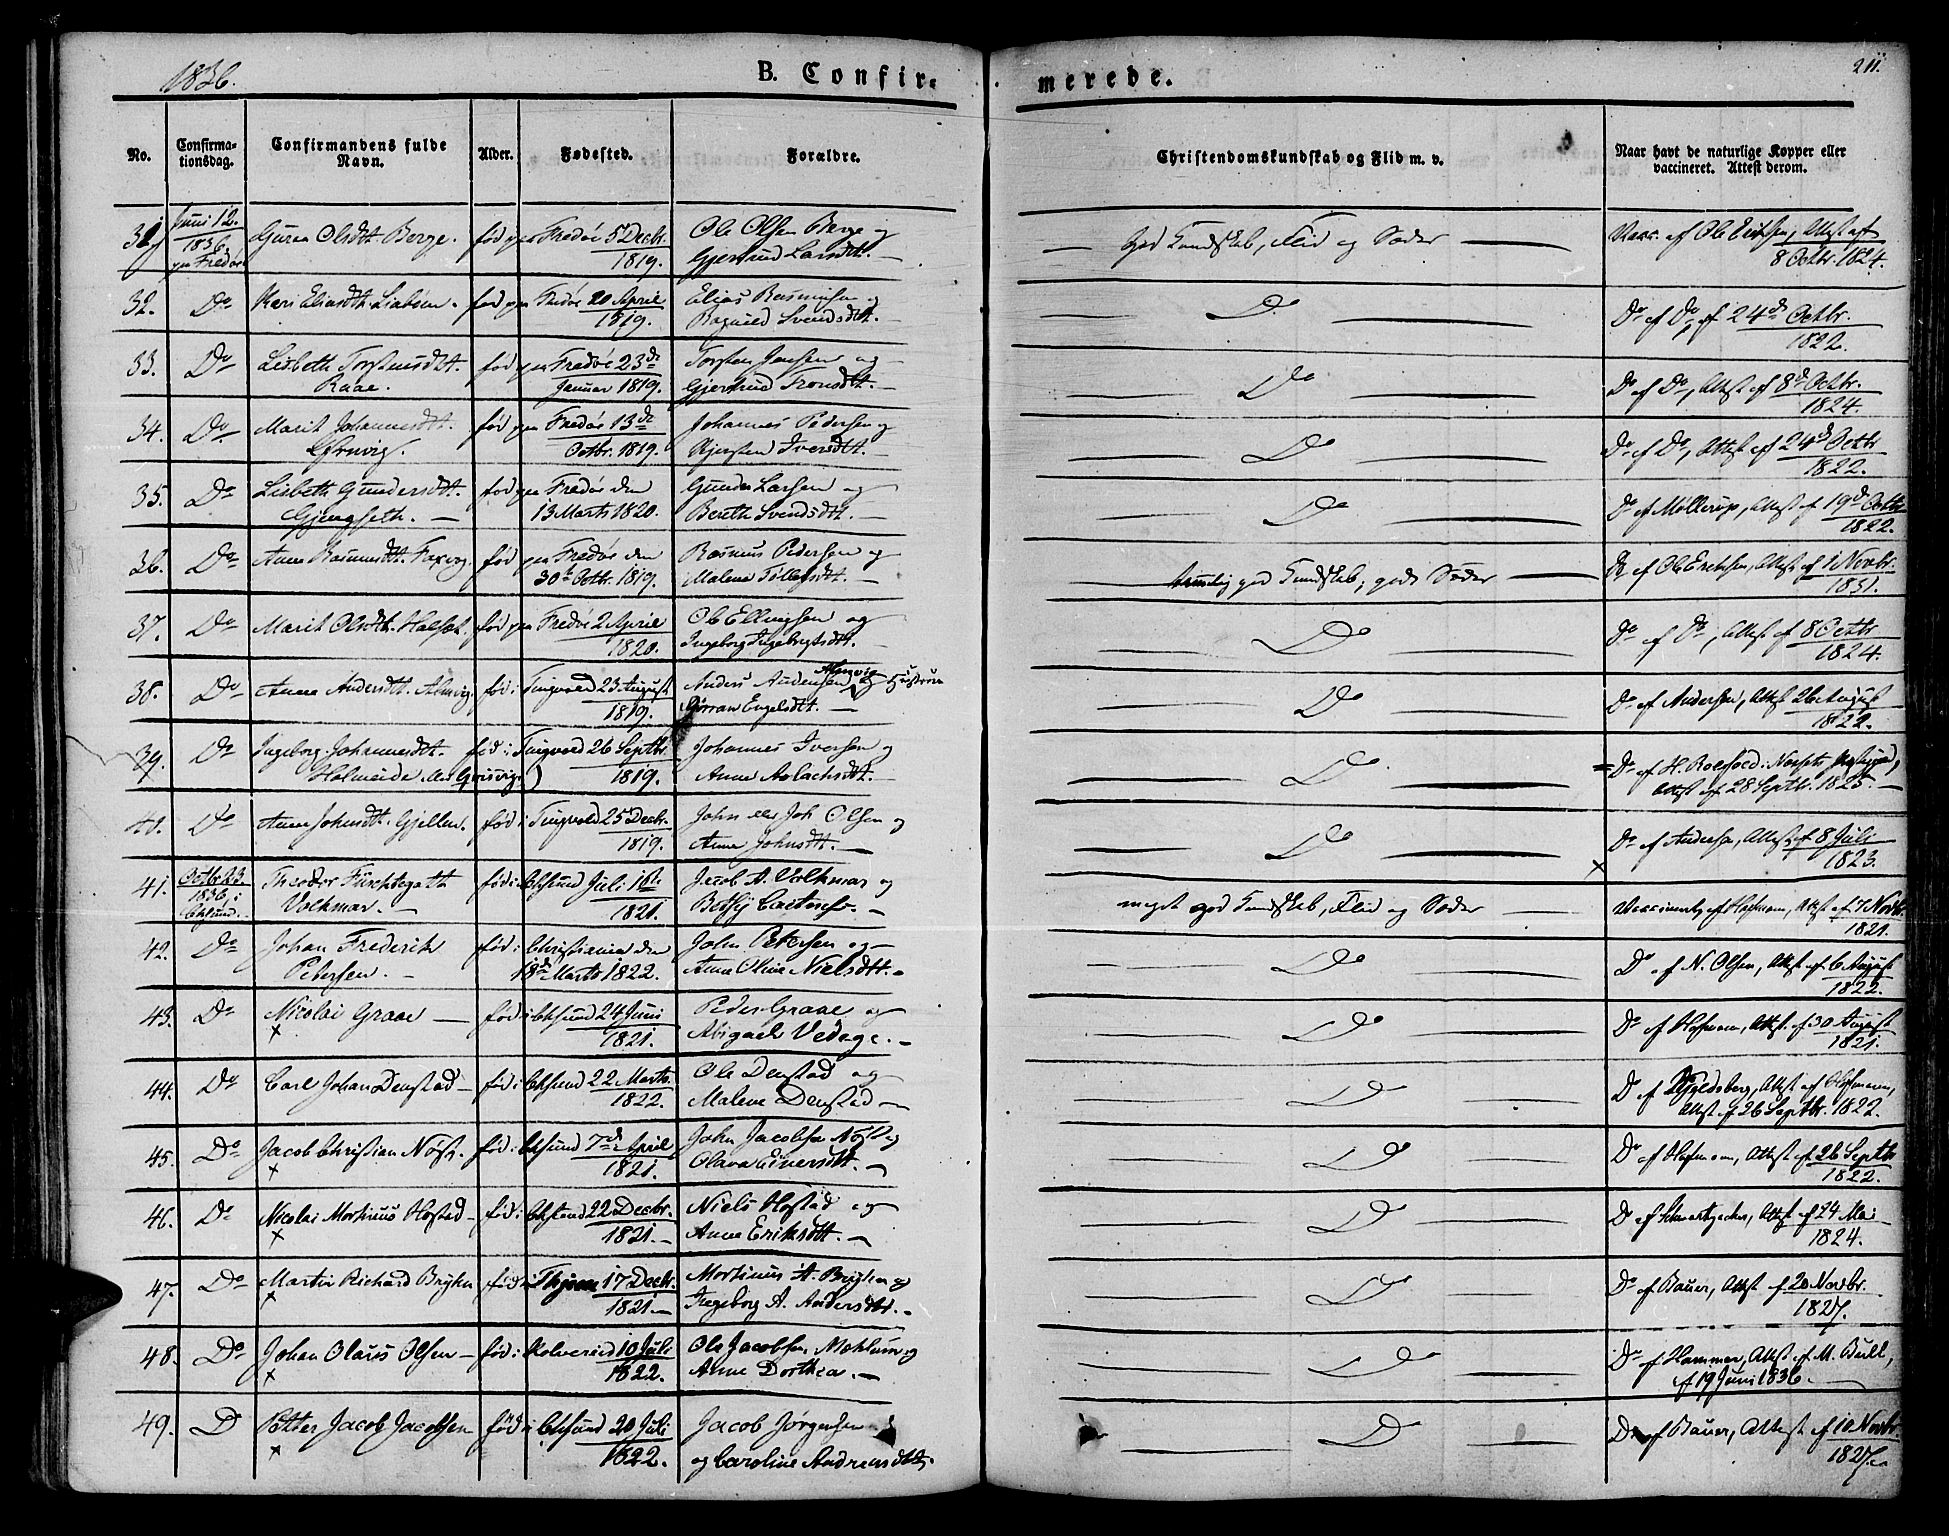 1836.
B. Confir-
merede.
211.
No.
Confirma-
tionsdag.
Confirmandens fulde
Navn.
Alder.
Fødested.
Forældre.
Christendomskundskab og Flid m. v.
Naar havt de naturlige Kopper eller
vaccineret. Attest derom.
31 Juni 12. 1836. paa Fredø Guren Olsdtt. Berge. fød paa Fredøe 5 Decbr. 1819. Ole Olsen Berge og Gjertrud Larsdtt. God Kundskab, Flid og Sæder Vacc. af Ole Eriksen, Attest af 8 Octbr. 1824.
32. Do Kari Eliasdtt. fød paa Fredøe 20 April 1819. Elias Rasmusen og Ragnild Svendsdtt. Do Do af Do, af 24de Octbr. 1822.
33. Do Lisbeth Torstensdtt. Raae. fød paa Fredøe 23de Januar 1819. Torsten Jensen og Gjertrud Tronsdtt. Do Do af Do, Attest af 8de Octbr. 1824.
34. Do Marit Johannesdtt. fød paa Fredøe 13de Octbr. 1819. Johannes Pedersen og Kjersten Iversdtt. Do Do af Do, Attest af 24de Octbr 1822.
35. Do Lisbeth Gundersdtt. Gjengseth. fød paa Fredøe den 13 Marts 1820. Gunder Larsen og Bereth Svendsdtt. Do Do af Møllerup, Attest af 19de Octbr 1822.
36. Do Anne Rasmusdtt. Faxvig. fød paa Fredøe den 30te Octbr. 1819. Rasmus Pedersen og Malena Tøllefsdtt. temmelig god Kundskab, gode Sæder Do af Ole Eriksen, Attest af 1 Novbr. 1831.
37. Do Marit Olsdtt. Halset. fød paa Fredøe 2 April 1820. Ole Ellingsen og Ingeborg Ingebrigtsdtt. Do Do af Do, Attest af 8 Octbr 1824.
38. Do Anne Andersdtt. Almvig. fød i Tingvold 23 August 1819. Anders Andersen Almvig og Hustrue Gjørran Engelsdtt. Do Do af Andersen, Attest 26 August 1822.
39. Do Ingeborg Johannesdtt. Holmeide eller Grisvig. fød i Tingvold 26 Septbr. 1819. Johannes Iversen og Anne Aslachsdtt. Do Do af H. Roelsød i Næssets Præstegjeld, Attest af 28 Septbr. 1825.
40. Do Anne Johnsdtt. Gjellen. fød i Tingvold 25 Decbr. 1819. John eller Joh Olsen og Anne Johnsdtt. Do Do af Andersen, Attest af 8 Juli 1823.
41. Octbr 23. 1836, i Chsund. Theodor Fürchtegath Volkmar. fød i Chsund Juli 1ste 1821. Jacob A. Volkmar og Betsy meget god Kundskab, Flid og Sæder Vaccinerede af Hofmann, Attest af 7 Novbr. 1821.
42. Do Johan Frederik Petersen. fød i Christiania den 18de Marts 1822. John Petersen og Anne Oline Nielsdtt. Do Do af N. Olsen, Attest af 6 August 1822.
43. Do Nicolai Graae fød i Chsund 24 Juni 1821. Peder Graae og Abigael Vedege. Do Do af Hofmann, Attst. af 30 August 1821.
44. Do Carl Johan Denstad fød i Chsund 22 Marts 1822. Ole Denstad og Malene Denstad Do Do af Kjeldsberg, Attest af Hofmann, Attst af 26 Septbr. 1822.
45. Do Jacob Christian Nøst. fød i Chsund 7de April 1821. John Jacobsen Nøst og Olava Einersdtt. Do Do af Hofmann, Attest af 26 Septbr 1822.
46. Do Nicolai Mortinus Hostad fød i Chsund 22 Decbr. 1821. Niels Hostad og Anne Eriksdtt. Do Do af Attest af 24 Mai 1824.
47. Do Martin Richard Bryhn fød i 17 Decbr. 1821. Mortinus A. Bryhn og Ingeborg A. Andersdtt. Do Do af Bauer, Attst af 20 Novbr. 1827.
48. Do Johan Olaus Olsen fød i Kolvereid 10 Juli 1822. Ole Jacobsen Mæhlum og Anne Dorthea. Do Do af Hammer, Attst af M. Bull, af 19 Juni 1836.
49. Do Petter Jacob Jacobsen fød i Chsund 20 Juli 1822. Jacob Jørgensen og Caroline Andreasdtt. Do Do af Bauer, Attest af 10 Novbr 1827.